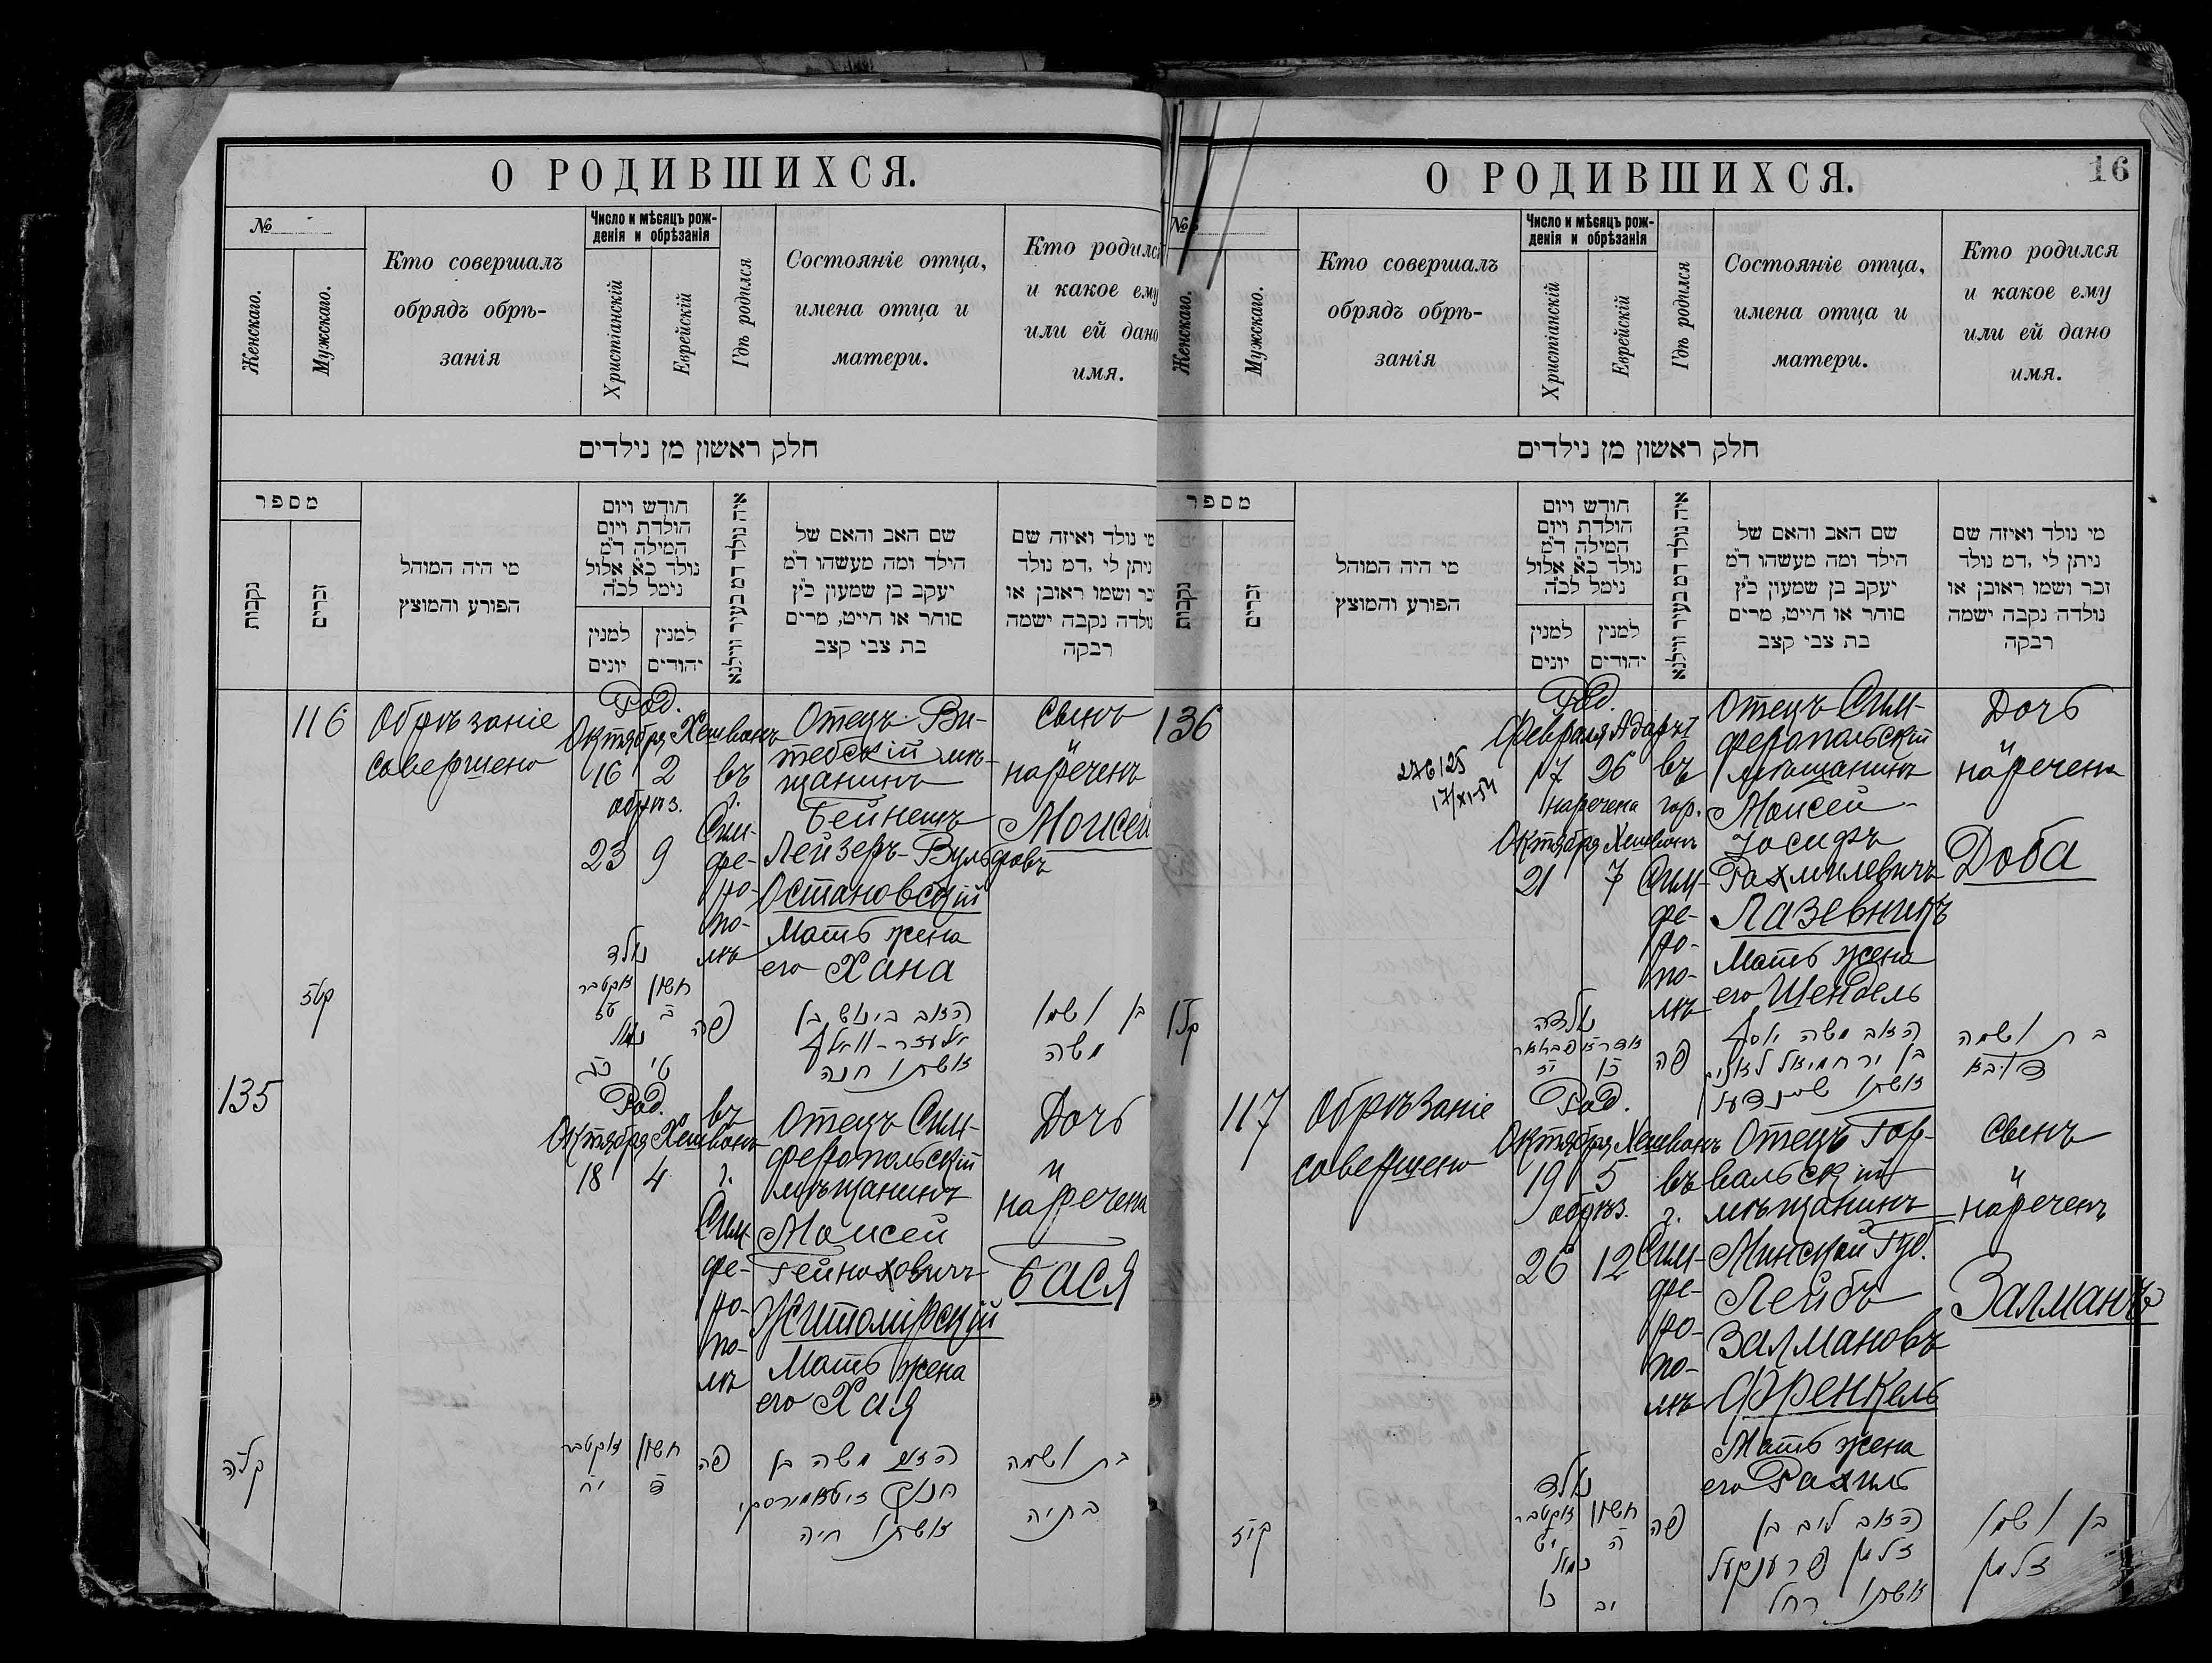 О РОДИВШИХСЯ.
№
Женскаго.
Мужскаго.
Кто совершалъ
обрядъ обрѣ-
занія
Число и мѣсяцъ рож-
денія и обрѣзанія
Христіанскій
Еврейскій
Гдѣ родился
Состояніе отца,
имена отца и
матери.
Кто родился
и какое ему
или ей дано
имя.
חלק ראשון מן נילדים
מספר
נקבות
זכרים
מי היה המוהל
הפורע והמוצץ
חודש ויום
הולדת ויום
המילה ד״מ
נולד כ״א אלול
נימל לכ״ה
למנין
יונים
למנין
יהודים
איה נולד דמ בעיר ווילנא
שם האב והאם של
הילד ומה מעשהו ד״מ
יעקב בן שמעון כ״ץ
סוחר או חייט, מרים
בת צבי קצב
מי נולד ואיזה שם
ניתן לי ,דמ נולד
זכר ושמו ראובן או
נולדה נקבה ישמה
רבקה
116
Обрѣзаніе
совершено
Род.
Октября Хешванъ
16 2
обрѣз.
23 9
въ
г.
Сим-
фе-
ро-
по-
лѣ
Отецъ Ви-
тебскій мѣ-
щанинъ
Бейнешъ
Лейзеръ-Вульфовъ
Остановскій
Мать жена
его Хана
Сынъ
и
нареченъ
Моисей
קטז
נולד
אקטבר חשון
טז ב
נמול
כג ט
פה
האב בינוש בן
אליעזר-וואלף
אשתו חנה
בן ושמו
משה
135
Род.
Октября Хешванъ
18 4
въ
г.
Сим-
фе-
ро-
по-
лѣ
Отецъ Сим-
феропольскій
мѣщанинъ
Моисей
Гейноховичъ
Житомірскій
Мать жена
его Хая
Дочь
и
наречена
БАСЯ
קלה
אקטבר חשון
יח ד
פה
האב משה בן
חנוך זיטאמירסקי
אשתו חיה
בת ושמה
בתיה
О РОДИВШИХСЯ.
16
№
Женскаго.
Мужскаго.
Кто совершалъ
обрядъ обрѣ-
занія
Число и мѣсяцъ рож-
денія и обрѣзанія
Христіанскій
Еврейскій
Гдѣ родился
Состояніе отца,
имена отца и
матери.
Кто родился
и какое ему
или ей дано
имя.
חלק ראשון מן נילדים
מספר
נקבות
זכרים
מי היה המוהל
הפורע והמוצץ
חודש ויום
הולדת ויום
המילה ד״מ
נולד כ״א אלול
נימל לכ״ה
למנין
יונים
למנין
יהודים
איה נולד דמ בעיר ווילנא
שם האב והאם של
הילד ומה מעשהו ד״מ
יעקב בן שמעון כ״ץ
סוחר או חייט, מרים
בת צבי קצב
מי נולד ואיזה שם
ניתן לי ,דמ נולד
זכר ושמו ראובן או
נולדה נקבה ישמה
רבקה
136
Род.
Февраля Адаръ I
17 26
наречена
Октября Хешванъ
21 7
въ
гор.
Сим-
фе-
ро-
по-
лѣ
Отецъ Сим-
феропольскій
мѣщанинъ
Моисей-
Іосифъ
Рахмилевичъ
Лазебникъ
Мать жена
его Шендель
Дочь
и
наречена
Доба
קלו
נולדה
פה
האב משה יוסף
בן ירחמיאל
אשתו שיינדעל
בת ושמה
דאבא
117
Обрѣзаніе
совершено
Род.
Октября Хешванъ
19 5
обрѣз.
26 12
въ
г.
Сим-
фе-
ро-
по-
лѣ
Отецъ Гор-
вальскій
мѣщанинъ
Минской Губ.
Лейбъ
Залмановъ
Френкель
Мать жена
его Рахиль
Сынъ
и
нареченъ
Залманъ
קיז
נולד
אקטבר חשון
יט ה
נמול
יב
פה
האב ליב בן
זלמן פרענקעל
אשתו רחל
בן ושמו
זלמן